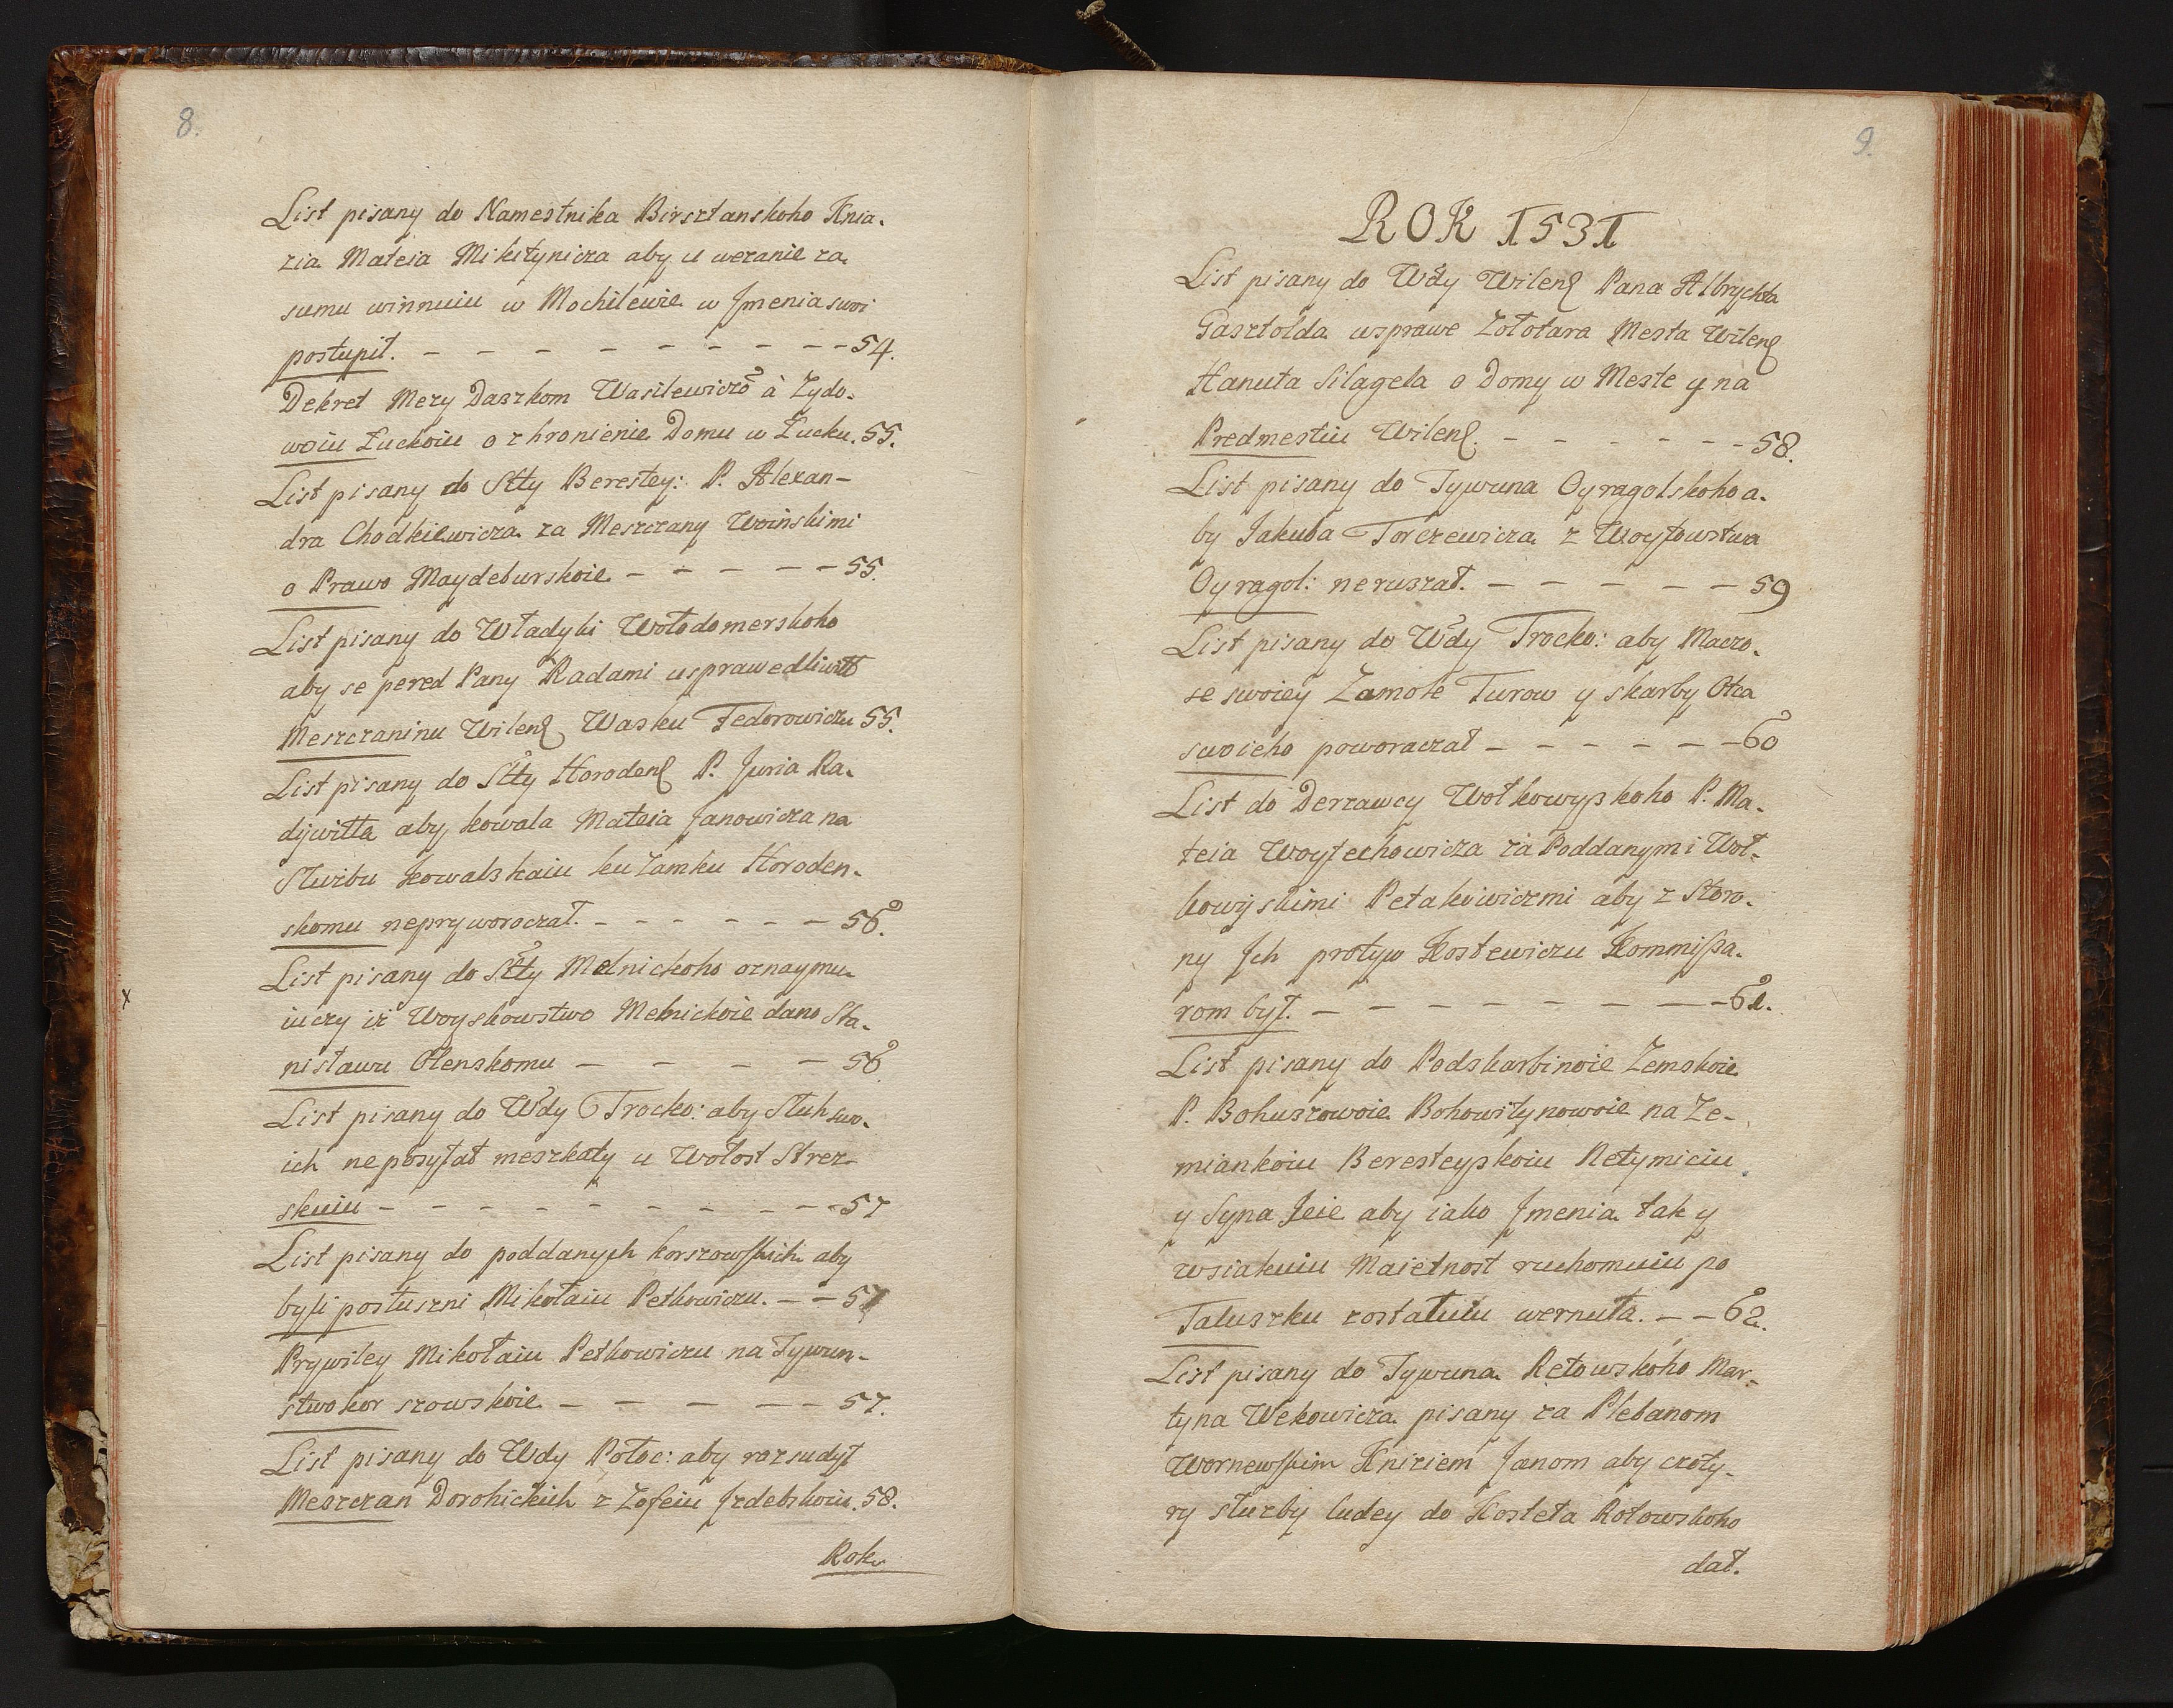 8.
List pisany do Namestnika Birsztanskoho Knia-
zia Mateia Mikitynicza aby u wezanie za
sumu winnuiu w Mochilewie w Jmenia swoi
postupil. — — — — — — — — 54.
Dekret Mezy Daszkom Wasilewiczo à Zydo-
woiu Łuckoiu o zhronienie Domu w Łucku. 55.
List pisany do Stty Berestey: P. Alexan-
dra Chodkiewicza za Meszczany Woinskimi
o Prawo Maydeburskoie — — — — — 55.
List pisany do Władyki Wołodomerskoho
aby se pered Pany Radami usprawedliwił
Meszczaninu Wilen Wasku Fedorowiczu 55.
List pisany do Stty Horoden P. Juria Ra-
diwiłła aby kowala Mateia Janowicza na
Służbu Kowalskaiu ku Zamku Horoden-
skomu nepryworoczał. — — — — — — 56.
List pisany do Stty Melnickoho oznaymu-
x
iuczy iż Woyskowstwo Melnickoie dano Sta-
nisławu Olenskomu — — — — 56
List pisany do Wdy Trocko: aby Słuh swo-
ich neposyłał meszkaty u Wołost Strez-
skuiu — — — — — — — — — 57
List pisany do poddanych korszowskich aby
byli posłuszni Mikołaiu Petkowiczu. — — 57
Prywiley Mikołaiu Petkowiczu na Tywun-
stwo korszowskoie — — — — — 57.
List pisany do Wdy Połoc: aby rozsudył
Meszczan Dorohickich z Zofeiu Jzdebskoiu. 58.
Rok
9.
ROK 1531
List pisany do Wdy Wilen Pana Albrychta
Gasztolda wsprawe Zołotara Mesta Wilen
Hanuta Silagela o Domy w Meste y na
Predmestiu Wilen. — — — — — — 58.
List pisany do Tywuna Oyragolskoho a-
by Jakuba Torczewicza z Woytowstwa
Oyragol: neruszał. — — — — — 59
List pisany do Wdy Trocko: aby Maczo-
se swoiey Zamok Turow y skarby Otca
swoieho poworaczał — — — — — — 60
List do Derzawcy Wołkowyskoho P. Ma-
teia Woytechowicza za Poddanymi Woł-
kowyskimi Petakowiczmi aby z Storo-
ny Jch protyw Kostewiczu Kommissa-
rom był. — — — — — — — 61.
List pisany do Podskarbinoie Zemskoie
P. Bohuszowoie Bohowitynowoie na Ze-
miankoiu Beresteyskoiu Retymiciu
y Syna Jeie aby iako Jmenia tak y
wsiakuiu Maietnost ruchomuiu po
Tatuszku zostałuiu wernuła. — — 62.
List pisany do Tywuna Retowskoho Mar-
tyna Wekowicza pisany za Plebanom
Wornewskim Kniziem Janom aby czoty-
ry służby ludey do Kosteła Rotowskoho
dał.